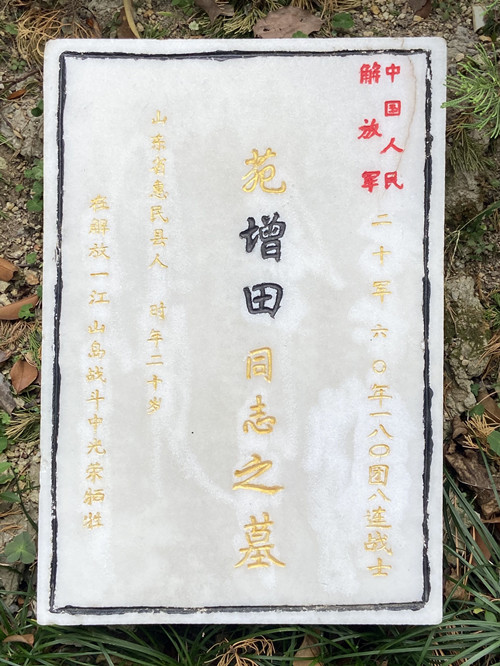 中国人民
解放军
二十军 六〇年一八〇团八连战士
苑增田同志之墓
山东省惠民县人 时年二十岁
在解放一江山岛战斗中光荣牺牲